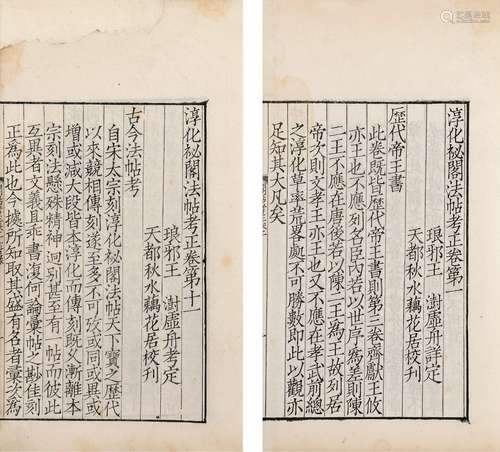 淳化祕閣法帖考正卷第一
琅邪王 澍虛舟詳定
天都秋水藕花居校刊
歷代帝王書
此卷既皆歷代帝王書則第二卷齊獻王攸
亦王也不應在列名臣內若以世序爲差則陳
二王不應在唐後若以陳二王爲王故列居
帝次則文孝王亦王也又不應在孝武前總
之淳化草率荒畧處不可勝數即此以觀亦
足知其大凡矣
淳化祕閣法帖考正卷第十一
琅邪王 澍虛舟考定
天都秋水藕花居校刊
古今法帖考
自宋太宗刻淳化祕閣法帖天下寶之歷代
以來競相傳刻遂至多不可攷或同或異或
增或減大段皆本淳化而傳刻既久漸離本
宗刻法懸殊精神迥別甚至有一帖而彼此
互異者文義且乖書復何論彙帖之尟佳刻
正爲此也今據所知取其盛有名者彙次爲